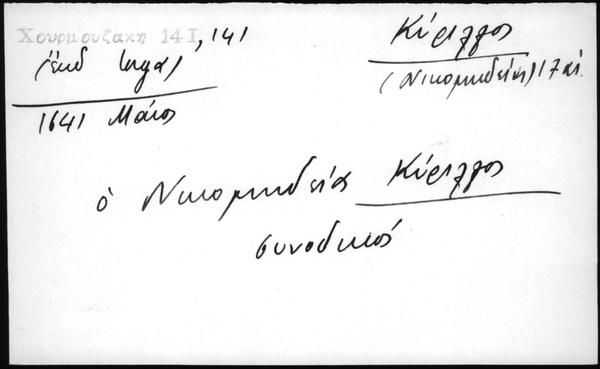 Χουρμουζακη 14 Ι, 141
1641 Μάιος
Κύριλλος
(Νικομηδείας) 17 αἰ.
ὁ Νικομηδείας Κύριλλος
συνοδικός